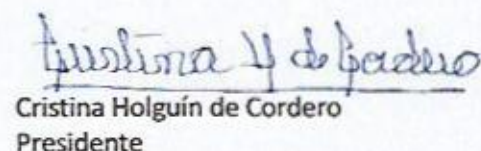 Cristina H de Cordero
Cristina Holguín de Cordero
Presidente